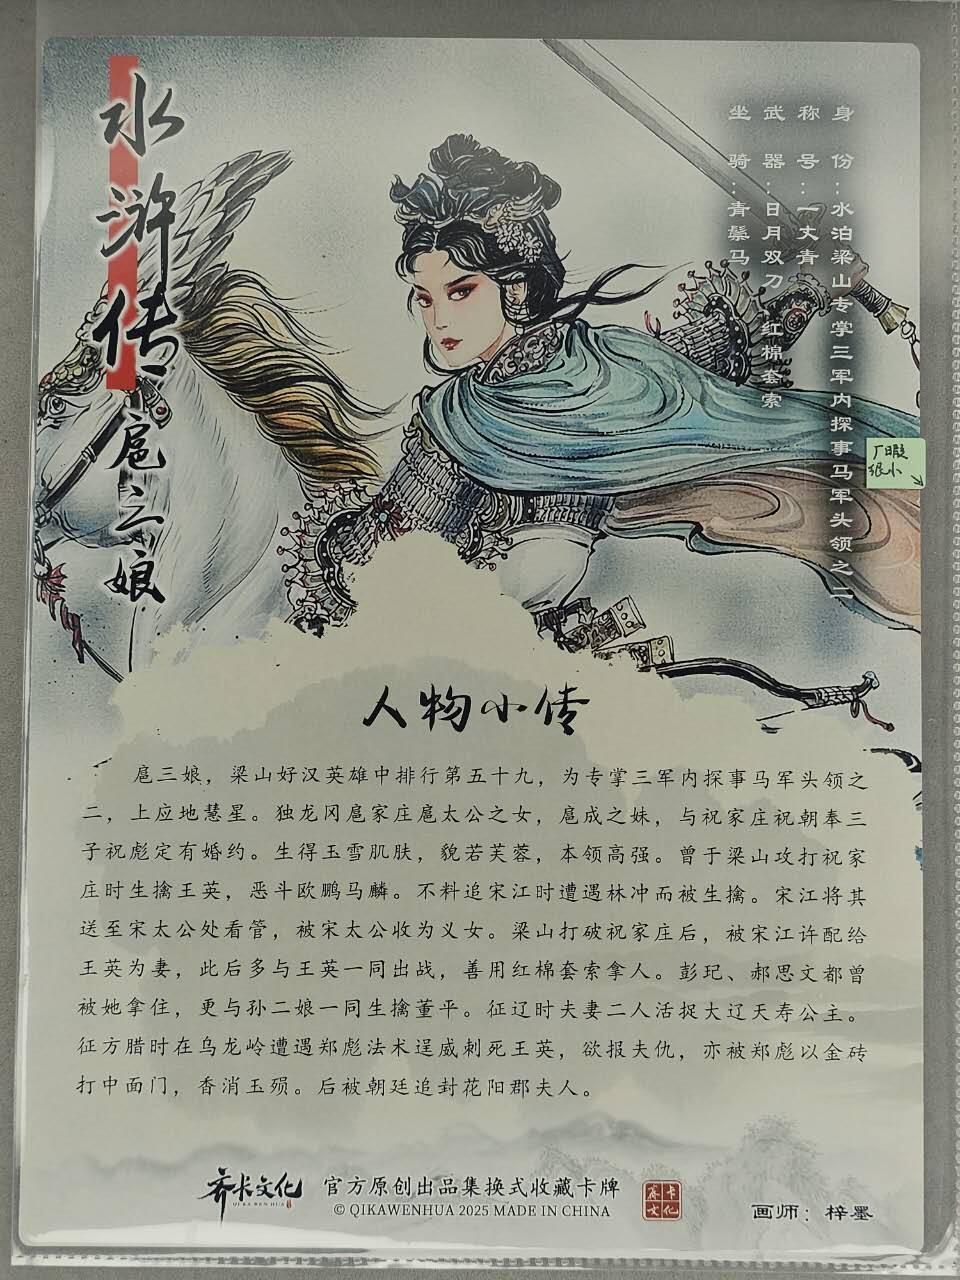 水浒传
扈三娘
身份：水泊梁山专掌三军内探事马军头领之二
称号：一丈青
武器：日月双刀 红棉套索
坐骑：青鬃马
厂瑕
很小
人物小传
扈三娘，梁山好汉英雄中排行第五十九，为专掌三军内探事马军头领之
二，上应地慧星。独龙冈扈家庄扈太公之女，扈成之妹，与祝家庄祝朝奉三
子祝彪定有婚约。生得玉雪肌肤，貌若芙蓉，本领高强。曾于梁山攻打祝家
庄时生擒王英，恶斗欧鹏马麟。不料追宋江时遭遇林冲而被生擒。宋江将其
送至宋太公处看管，被宋太公收为义女。梁山打破祝家庄后，被宋江许配给
王英为妻，此后多与王英一同出战，善用红棉套索拿人。彭玘、郝思文都曾
被她拿住，更与孙二娘一同生擒董平。征辽时夫妻二人活捉大辽天寿公主。
征方腊时在乌龙岭遭遇郑彪法术逞威刺死王英，欲报夫仇，亦被郑彪以金砖
打中面门，香消玉殒。后被朝廷追封花阳郡夫人。
齐卡文化
QI KA WEN HUA
官方原创出品集换式收藏卡牌
© QIKAWENHUA 2025 MADE IN CHINA
齐卡文化
画师：梓墨